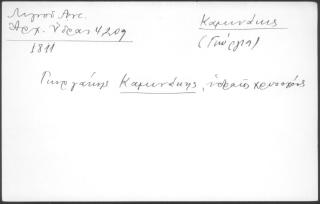 Λιγνοῦ Αντ.
Ἀρχ. Ὕδρας 4 209
1811
Καμινάκης
(Γιώργης)
Γιωργάκης Καμινάκης, ὑδραῖος χρυσοχόος